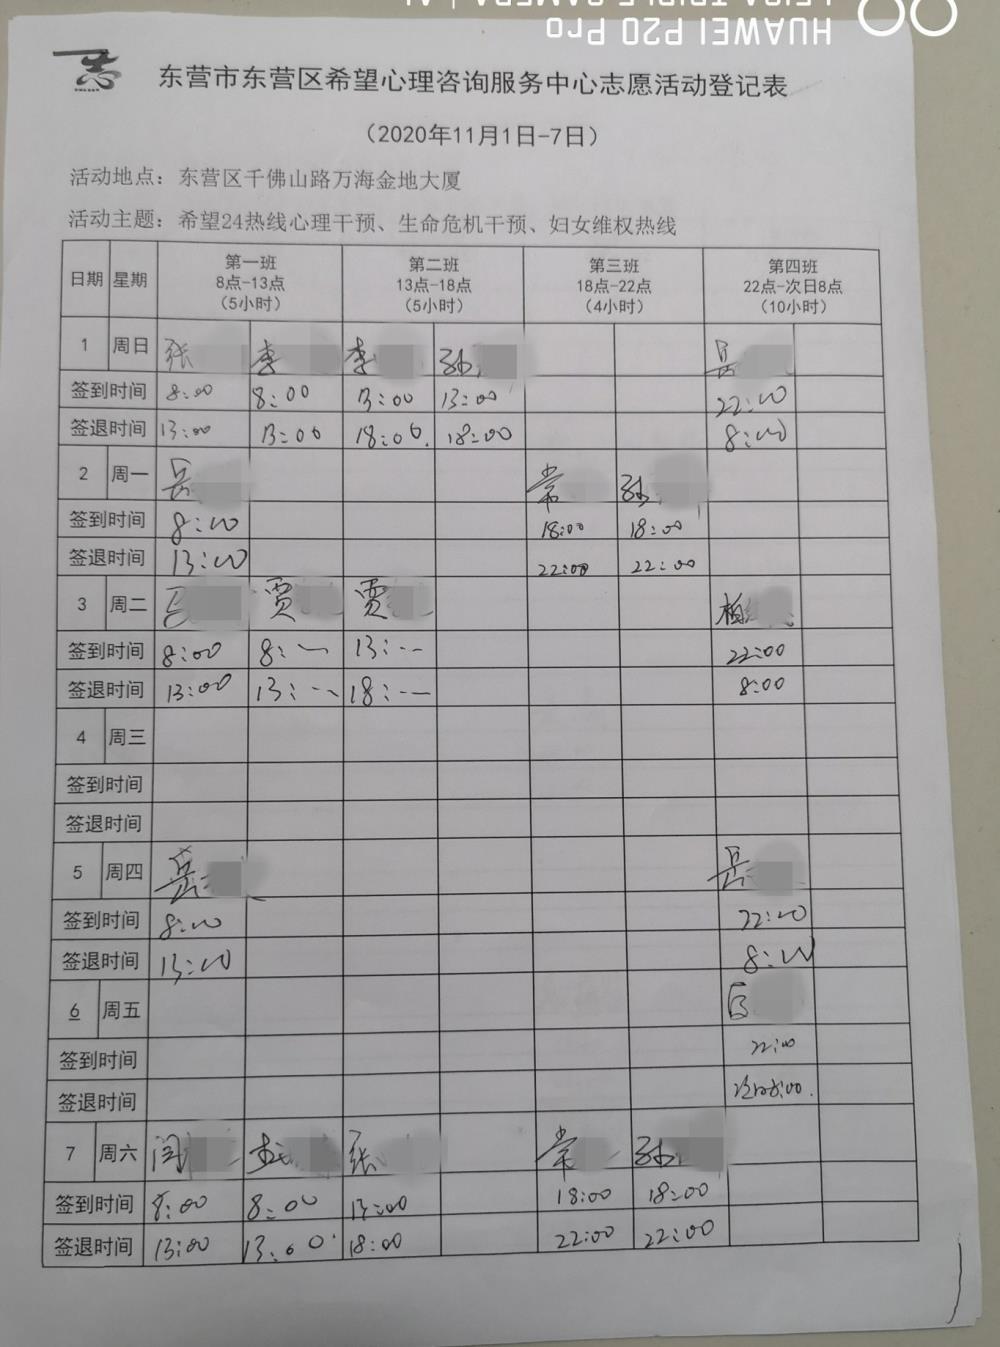 LEICA TRIPLE CAMERA | AI
HUAWEI P20 Pro
东营市东营区希望心理咨询服务中心志愿活动登记表
（2020年11月1日-7日）
活动地点：东营区千佛山路万海金地大厦
活动主题：希望24热线心理干预、生命危机干预、妇女维权热线
日期 星期 第一班 8点-13点 （5小时） 第二班 13点-18点 （5小时） 第三班 18点-22点 （4小时） 第四班 22点-次日8点 （10小时）
1 周日 张 李 李 孙 吴
签到时间 8:00 8:00 13:00 13:00 22:00
签退时间 13:00 13:00 18:00. 18:00 8:00
2 周一 吴 常 孙
签到时间 8:00 18:00 18:00
签退时间 13:00 22:00 22:00
3 周二 贾 贾 柏
签到时间 8:00 8:-- 13:-- 22:00
签退时间 13:00 13:-- 18:-- 8:00
4 周三
签到时间
签退时间
5 周四 岳 岳
签到时间 8:00 22:00
签退时间 13:00 8:00
6 周五
签到时间 22:00
签退时间 次日8:00.
7 周六 闫 张 常 孙
签到时间 8:00 8:00 13:00 18:00 18:00
签退时间 13:00 13:00 18:00 22:00 22:00